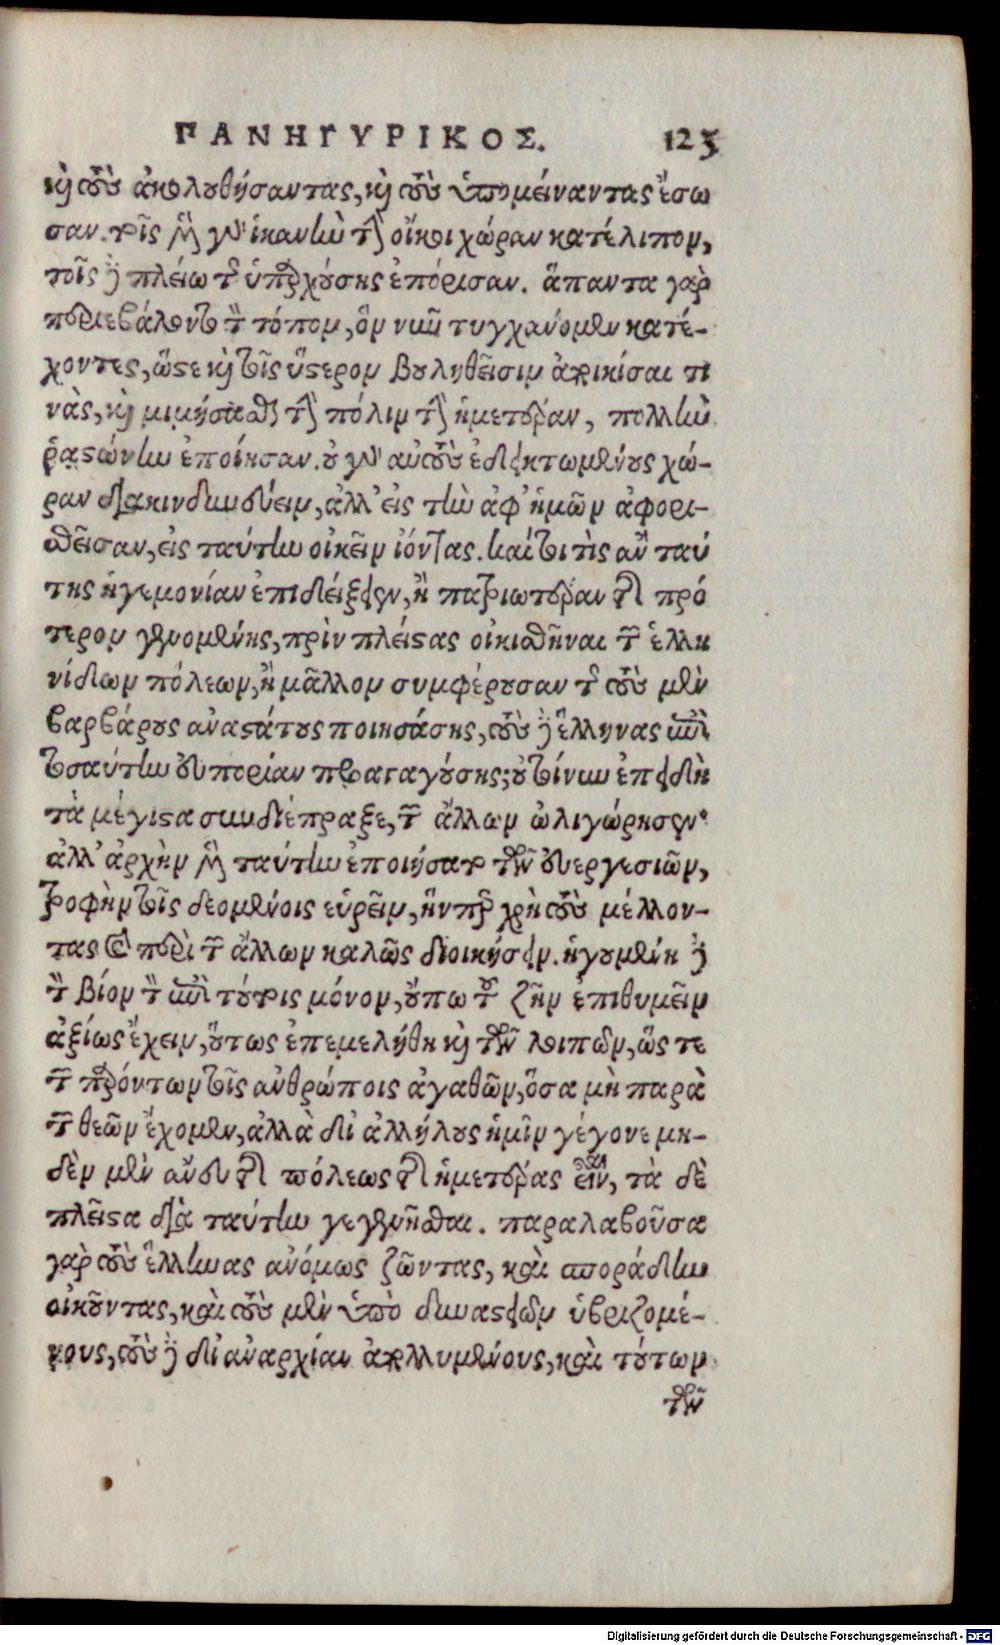 ΠΑΝΗΓΥΡΙΚΟΣ. 125
καὶ τοὺς ἀκολουθήσαντας, καὶ τοὺς ὑπομείναντας ἔσω
σαν. τοῖς μὲν γὰρ ἱκανὴν τὴν οἴκοι χώραν κατέλιπον,
τοῖς δὲ πλείω τῆς ὑπαρχούσης ἐπόρισαν. ἅπαντα γὰρ
περιεβάλοντο τὸν τόπον, ὃν νῦν τυγχάνομεν κατέ-
χοντες, ὥστε καὶ τοῖς ὕστερον βουληθεῖσιν ἀποικίσαι τι
νὰς, καὶ μιμήσασθαι τὴν πόλιν τὴν ἡμετέραν, πολλὴν
ῥᾳστώνην ἐποίησαν. οὐ γὰρ αὐτοὺς ἔδει κτωμένους χώ-
ραν διακινδυνεύειν, ἀλλ' εἰς τὴν ἀφ' ἡμῶν ἀφορι-
σθεῖσαν, εἰς ταύτην οἰκεῖν ἰόντας. καίτοι τὶς ἂν ταύ
της ἡγεμονίαν ἐπιδείξειεν, ἢ πατριωτέραν τῆς πρό
τερον γενομένης, πρὶν πλείστας οἰκισθῆναι τῶν ἑλλη
νίδων πόλεων, ἢ μᾶλλον συμφέρουσαν τῆς τοὺς μὲν
βαρβάρους ἀναστάτους ποιησάσης, τοὺς δὲ ἕλληνας ἐπὶ
τοσαύτην εὐπορίαν προαγαγούσης; οὐ τοίνυν ἐπειδὴ
τὰ μέγιστα συνδιέπραξε, τῶν ἄλλων ὠλιγώρησεν·
ἀλλ' ἀρχὴν μὲν ταύτην ἐποιήσατο τῶν εὐεργεσιῶν,
τροφὴν τοῖς δεομένοις εὑρεῖν, ἥνπερ χρὴ τοὺς μέλλον-
τας καὶ περὶ τῶν ἄλλων καλῶς διοικήσειν. ἡγουμένη δὲ
τὸν βίον τὸν ἐπὶ τούτοις μόνον, οὔπω τοῦ ζῆν ἐπιθυμεῖν
ἀξίως ἔχειν, οὕτως ἐπεμελήθη καὶ τῶν λοιπῶν, ὥστε
τῶν παρόντων τοῖς ἀνθρώποις ἀγαθῶν, ὅσα μὴ παρὰ
τῶν θεῶν ἔχομεν, ἀλλὰ δι' ἀλλήλους ἡμῖν γέγονε μη-
δὲν μὲν ἄνευ τῆς πόλεως τῆς ἡμετέρας εἶναι, τὰ δὲ
πλεῖστα διὰ ταύτην γεγενῆσθαι. παραλαβοῦσα
γὰρ τοὺς ἕλληνας ἀνόμως ζῶντας, καὶ σποράδην
οἰκοῦντας, καὶ τοὺς μὲν ὑπὸ δυναστειῶν ὑβριζομέ-
νους, τοὺς δὲ δι' ἀναρχίαν ἀπολλυμένους, καὶ τούτων
τῶν
Digitalisierung gefördert durch die Deutsche Forschungsgemeinschaft - DFG